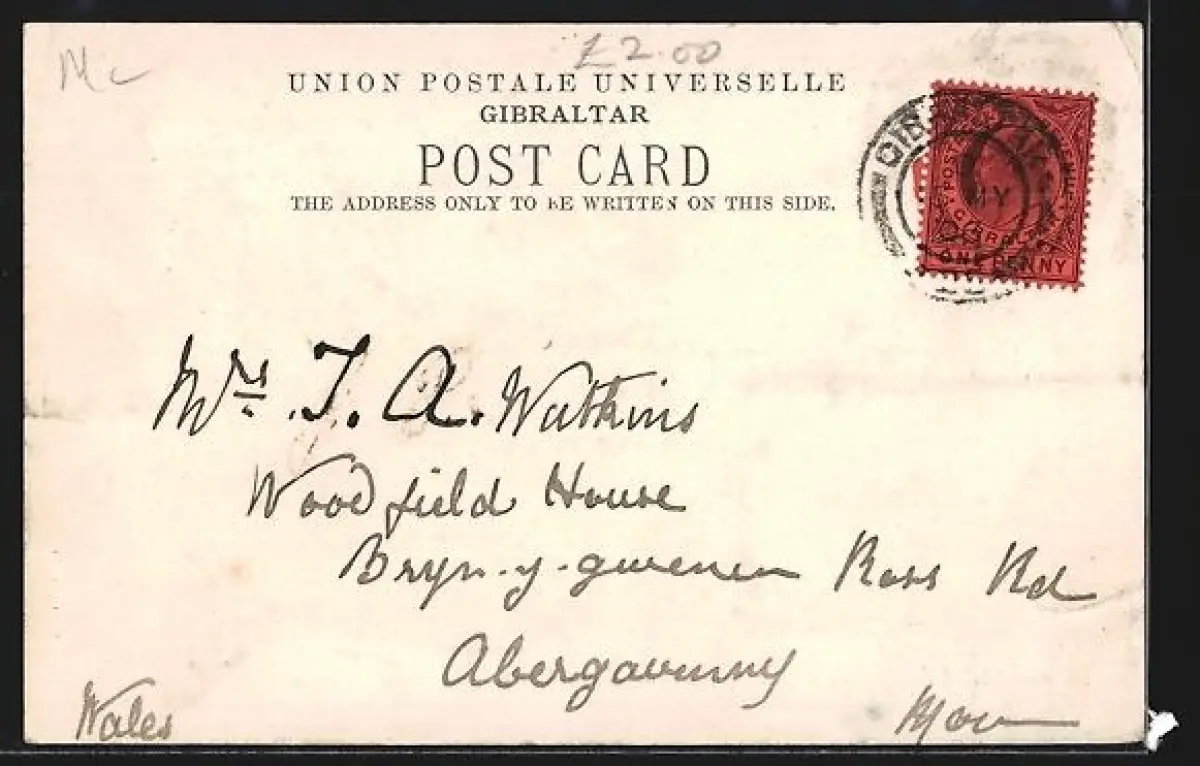 £2.00
UNION POSTALE UNIVERSELLE
GIBRALTAR
POST CARD
THE ADDRESS ONLY TO BE WRITTEN ON THIS SIDE.
POSTAGE
GIBRALTAR
ONE PENNY
MY
Mrs. T. A. Watkins
Woodfield House
Bryn-y-gwenen Ross Rd
Abergavenny
Wales Mon